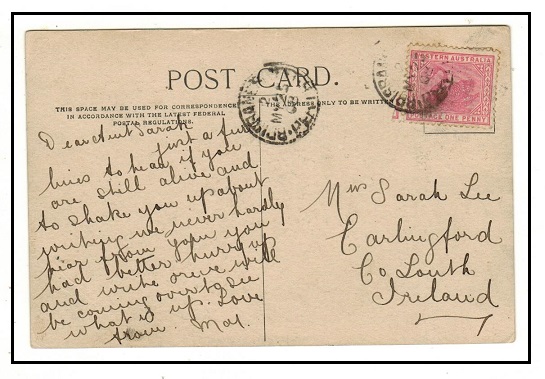 POST CARD.
THIS SPACE MAY BE USED FOR CORRESPONDENCE
IN ACCORDANCE WITH THE LATEST FEDERAL
POSTAL REGULATIONS.
THE ADDRESS ONLY TO BE WRITTEN
WESTERN AUSTRALIA
POSTAGE ONE PENNY
Dear Aunt Sarah
just a few
lines to hear if you
are still alive and
to shake you up about
writing we never hardly
hear from you you
had better hurry up
and write or we will
be coming over to see
what is up. Love
from May.
Miss Sarah Lee
Carlingford
Co Louth
Ireland